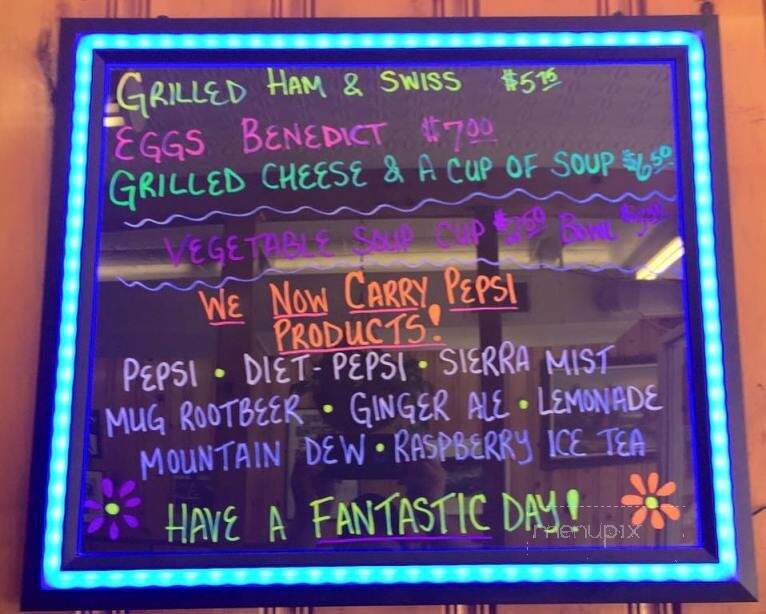 GRILLED HAM & SWISS $5.75
EGGS BENEDICT $7.00
GRILLED CHEESE & A CUP OF SOUP $6.50
VEGETABLE SOUP CUP $2.50 BOWL
WE NOW CARRY PEPSI
PRODUCTS!
PEPSI • DIET-PEPSI • SIERRA MIST
MUG ROOTBEER • GINGER ALE • LEMONADE
MOUNTAIN DEW • RASPBERRY ICE TEA
HAVE A FANTASTIC DAY!
menupix